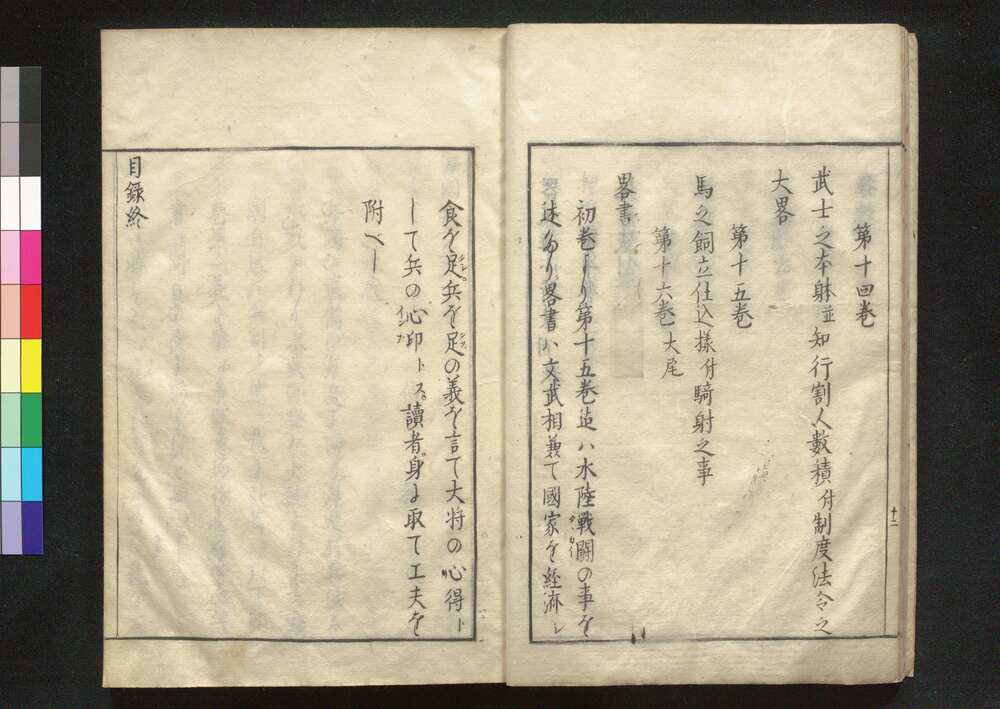 第十四巻
武士之本躰並知行割人數積付制度法令之
大畧
第十五巻
馬之飼立仕込様付騎射之事
第十六巻大尾
畧書
初巻より第十五巻迠ハ水陸戰闘の事を
述るり畧書ハ文武相兼て國家を経済シ
十二
食を足兵を足の義を言て大将の心得ト
して兵の心印トス讀者身よ取て工夫を
附べし
目録終